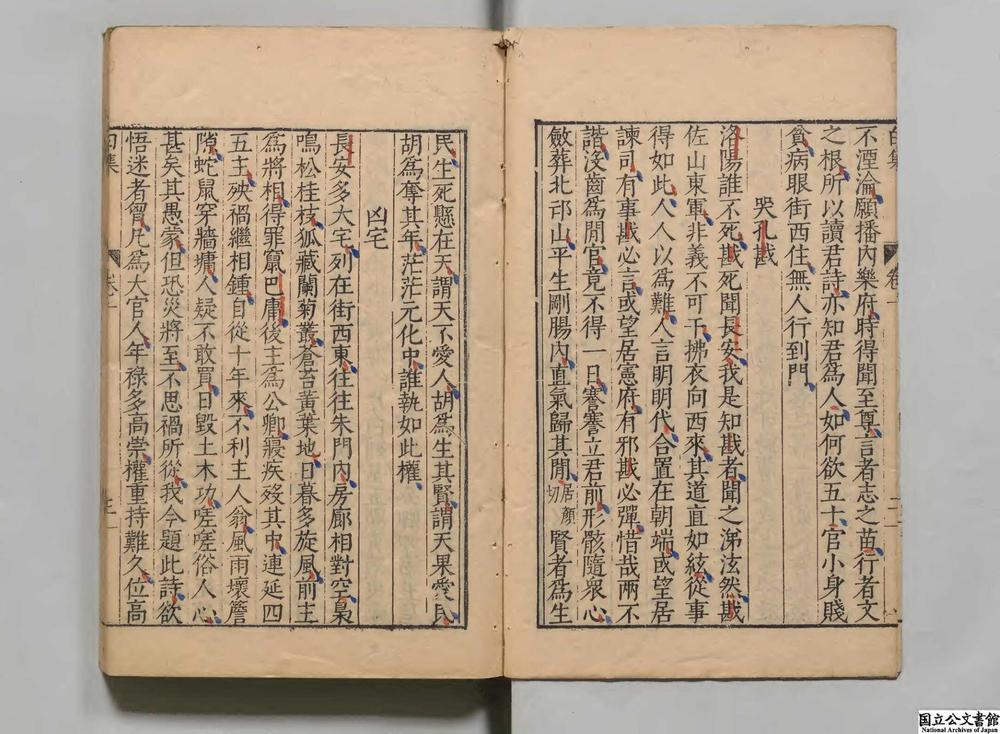 不湮淪願播內樂府時得聞至尊言者志之苗行者文
之根所以讀君詩亦知君為人如何欲五十官小身賤
貧病眼街西住無人行到門
哭孔戡
洛陽誰不死戡死聞長安我是知戡者聞之涕泫然戡
佐山東軍非義不可干拂衣向西來其道直如絃從事
得如此人人以為難人言明明代合置在朝端或望居
諫司有事戡必言或望居憲府有邪戡必彈惜哉兩不
諧沒齒為閒官竟不得一日謇謇立君前形骸隨衆心
斂葬北邙山平生剛腸內直氣歸其間居顏切賢者為生
民生死懸在天謂天不愛人胡為生其賢謂天果愛民
胡為奪其年茫茫元化中誰執如此權
凶宅
長安多大宅列在街西東往往朱門內房廊相對空梟
鳴松桂枝狐藏蘭菊叢蒼苔黃葉地日暮多旋風前主
為將相得罪竄巴庸後主為公卿寢疾歿其中連延四
五主殃禍繼相鍾自從十年來不利主人翁風雨壞簷
隙蛇鼠穿牆墉人疑不敢買日毀土木功嗟嗟俗人心
甚矣其愚蒙但恐災將至不思禍所從我今題此詩欲
悟迷者胷凡為大官人年祿多高崇權重持難久位高
白集
卷一
国立公文書館
National Archives of Japan